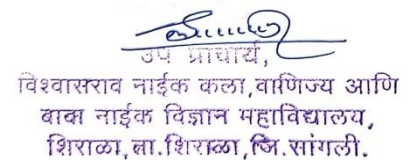 उप प्राचार्य,
विश्वासराव नाईक कला,वाणिज्य आणि
बाबा नाईक विज्ञान महाविद्यालय,
शिराळा,ता.शिराळा,जि.सांगली.